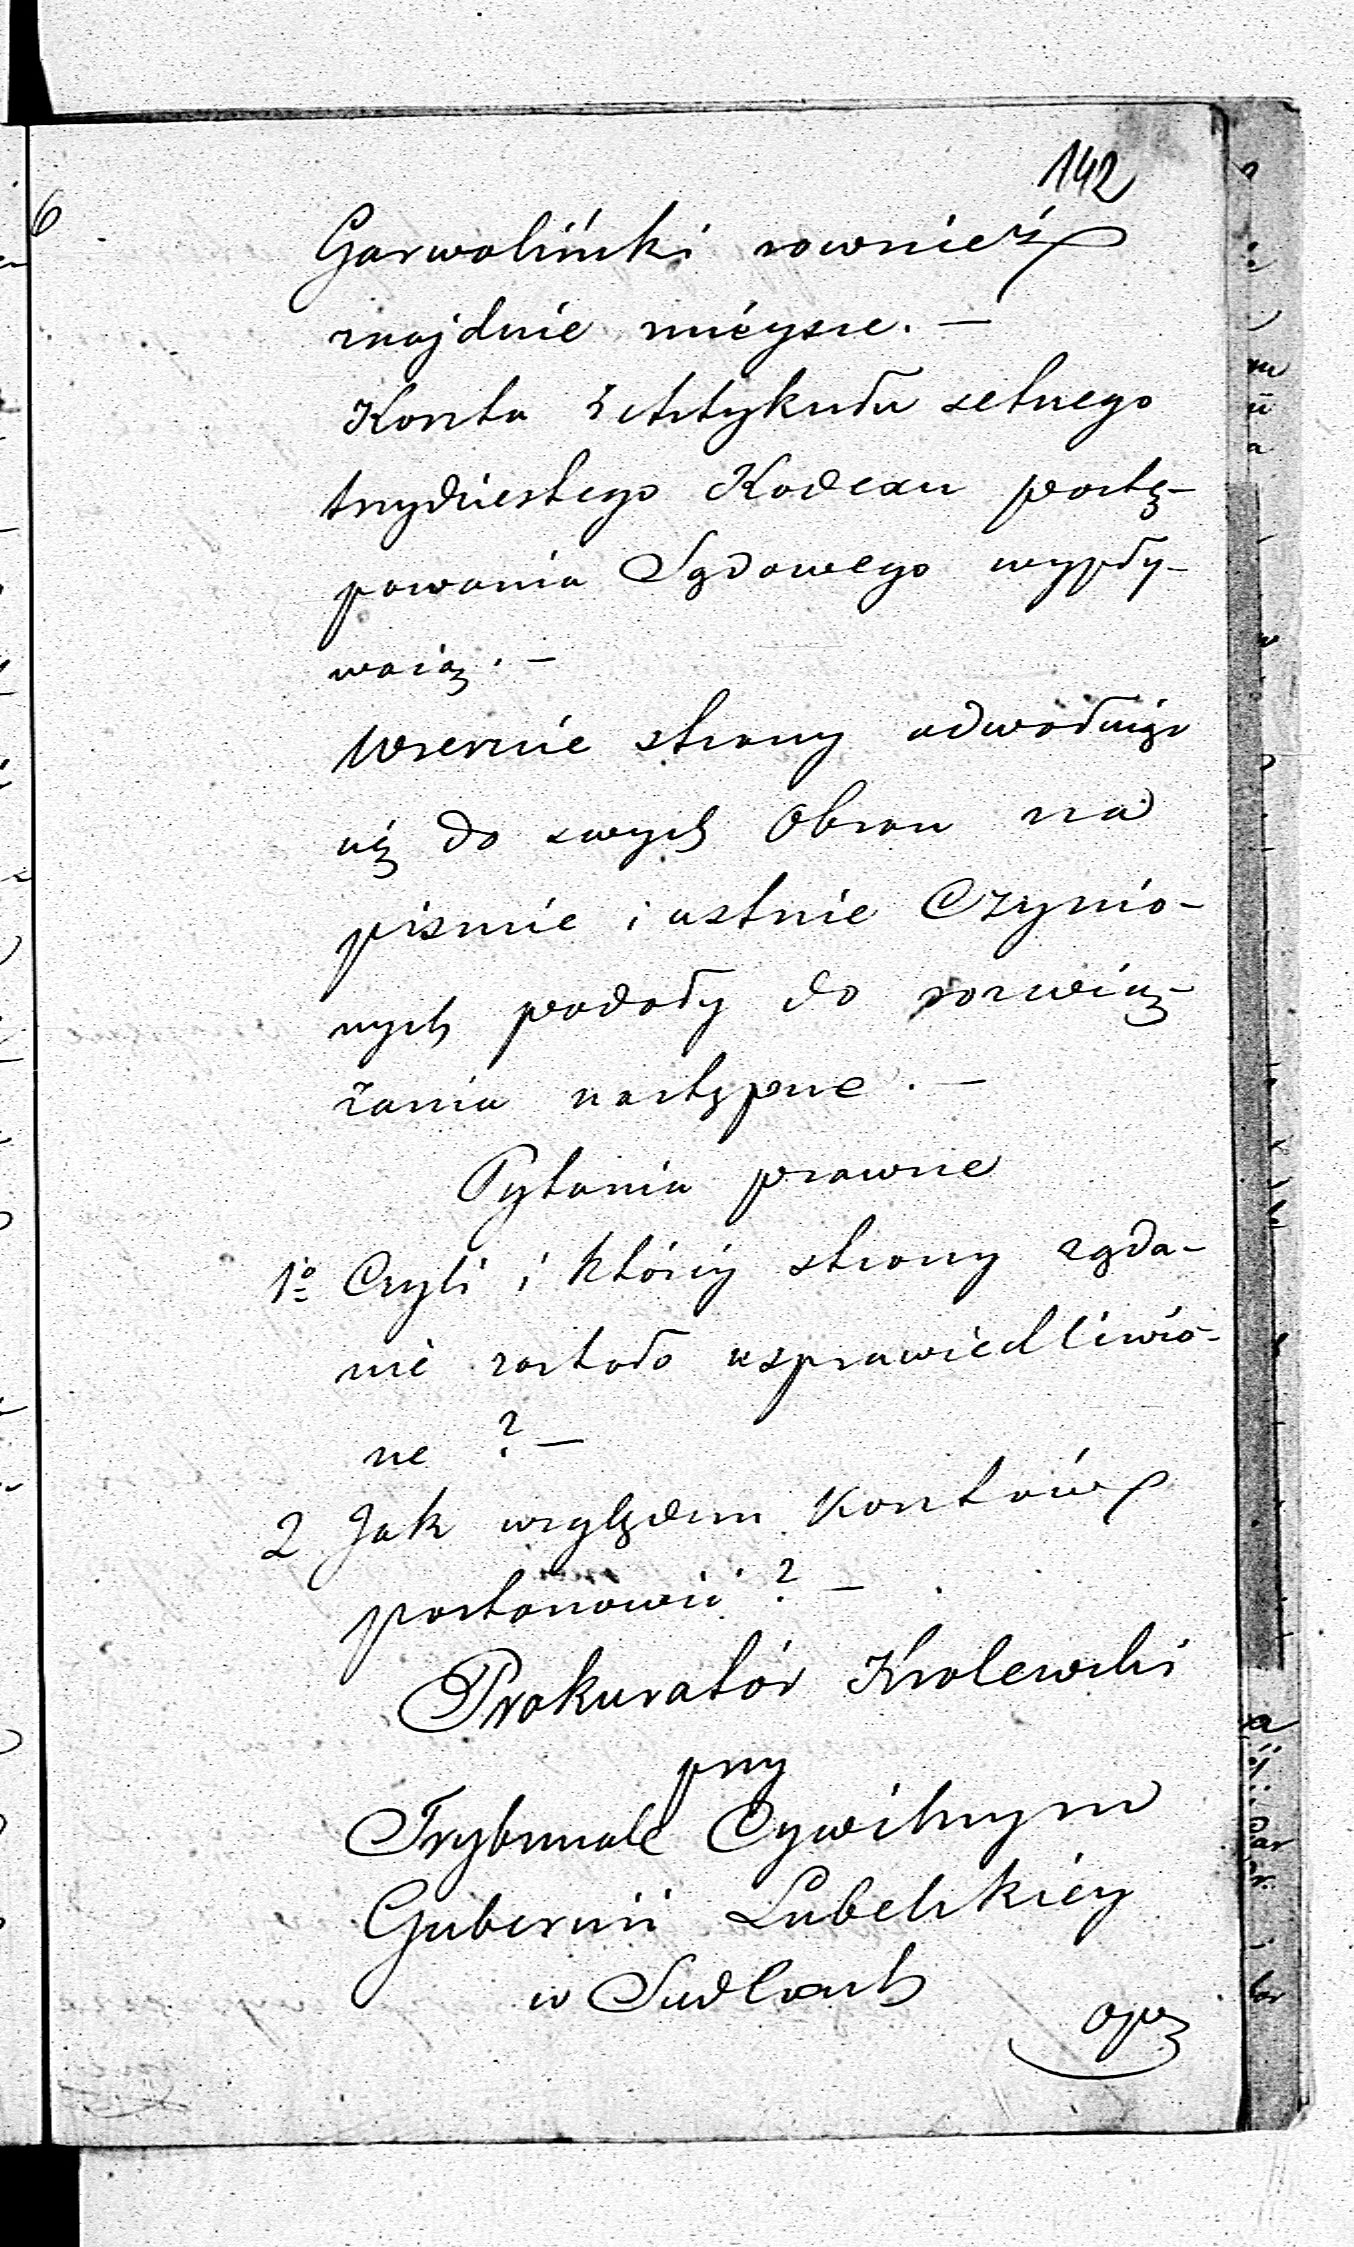 142
Garwoliński rownież
znajdzie mieysce. —
Koszta z Artykułu setnego
trzydziestego Kodexu postę-
powania Sądowego wypły-
waią. —
Wzencie strony odwołuiąc
się do swych Obron na
pismie i ustnie Czynio-
nych podały do rozwią-
zania następne. —
Pytania prawne
1o Czyli i któréy strony żąda-
nie zostało usprawiedliwio-
ne? —
2 Jak względem Kosztów
postanowić? —
Prokuratór Krolewski
przy
Trybunale Cywilnym
Gubernii Lubelskiéy
w Siedlcach